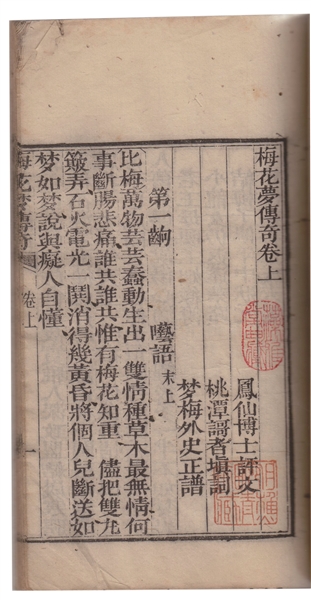 梅花夢傳奇卷上
鳳仙博士評文
桃潭謌者塡詞
梦梅外史正譜
第一齣　囈語 末上
比梅萬物芸芸蠢動生出一雙情種草木最無情何
事斷腸悲痛誰共誰共惟有梅花知重　儘把雙丸
簸弄石火電光一閧消得幾黃昏將個人兒斷送如
梦如梦說與癡人自懂
梅花梦傳奇 卷上 一